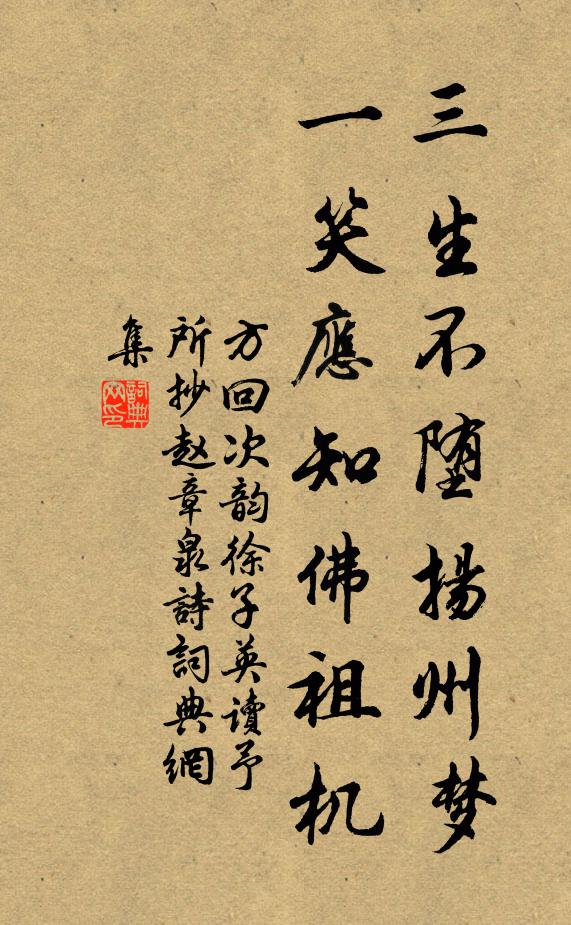 三生不堕揚州梦
一笑應知佛祖机
方回次韵徐子英讀予
所抄赵章泉詩詞典網
集
詞典
网印